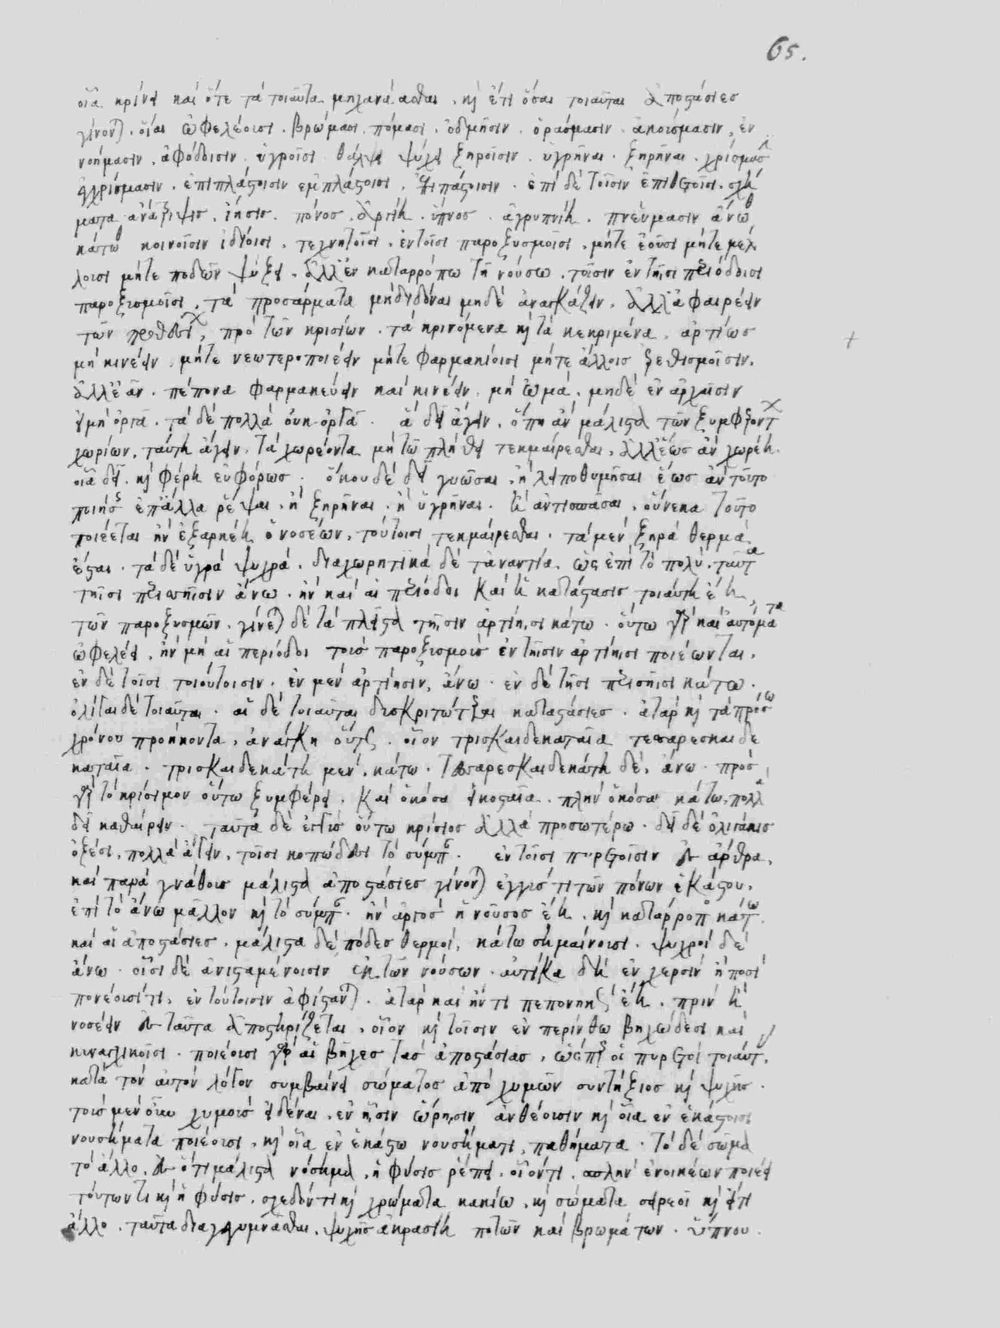 65.
οἷα κρίνει καὶ ὅτε τὰ τοιαῦτα μηχανάασθαι, κὴ ἔτι ὅσαι τοιαῦται ἀποστάσιες
γίνονται, οἵαι ὠφελέοισι. βρώμασι, πόμασι, ὀδμῆσιν. ὁράσμασιν. ἀκούσμασιν, ἐν
νοήμασιν, ἀφόδοισιν. ὑγροῖσι θάλψει ψύξει ξηροῖσιν. ὑγρῆναι. ξηρῆναι. χρίσμασι
ἐγχρίσμασιν. ἐπιπλάστοισιν ἐμπλάστοισι, ἐπιπάστοισιν. ἐπιδέτοισιν ἐπιθέτοισι. σχή
ματα ἀνάτριψις, ἴησις. πόνος, ἀργίη. ὕπνος. ἀγρυπνίη. πνεύμασιν ἄνωθ
κάτωθ κοινοῖσιν ἰδίοισι, τεχνητοῖσι, ἐν τοῖσι παροξυσμοῖσι, μήτε ἐοῦσι μήτε μέλ
λουσι μήτε ποδῶν ψύξει. ἀλλ' ἐν καταρρόπω τῇ νούσω, τοῖσιν ἐν τῇσι περιόδοισι
παροξυσμοῖσι, τὰ προσάρματα μὴ διδόναι μηδὲ ἀναγκάζειν, ἀλλ' ἀφαιρέειν
τῶν προσθεσί, πρὸ τῶν κρισίων. τὰ κρινόμενα κὴ τὰ κεκριμένα, ἀρτίως
μὴ κινέειν, μήτε νεωτεροποιέειν μήτε φαρμακίοισι μήτε ἄλλοις ἐρεθισμοῖσιν.
ἀλλ' ἐᾶν. πέπονα φαρμακεύειν καὶ κινέειν, μὴ ὠμά, μηδὲ ἐν ἀρχῇσιν
ἢν μὴ ὀργᾶ. τὰ δὲ πολλὰ οὐκ ὀργᾶ. ἃ δεῖ ἄγειν, ὅπη ἂν μάλιστα τῶν ξυμφερόντ
χωρίων, ταύτη ἄγειν. τὰ χωρέοντα μὴ τῷ πλήθει τεκμαίρεσθαι, ἀλλ' ἕως ἂν χωρέη
οἷα δεῖ. κὴ φέρη εὐφόρως. ὅκου δὲ δεῖ γυῶσαι, ἢ λειποθυμῆσαι ἕως ἂν τοῦτο
ποιήσ ἐπ' ἄλλα ῥέψαι, ἢ ξηρῆναι. ἢ ὑγρῆναι. ἢ ἀντισπᾶσαι, οὕνεκα τοῦτο
ποιέεται ἢν ἐξαρκέη ὁ νοσέων, τούτοισι τεκμαίρεσθαι. τὰ μὲν ξηρὰ θερμὰ
ἔσται. τὰ δὲ ὑγρὰ ψυχρά. διαχωρητικὰ δὲ τἀναντία, ὡς ἐπὶ τὸ πολὺ. ταῦτα
τῇσι περισσῇσιν ἄνω. ἢν καὶ αἱ περίοδοι καὶ ἡ κατάστασις τοιαύτη ἔη
τῶν παροξυσμῶν. γίνεται δὲ τὰ πλεῖστα τῇσιν ἀρτίῃσι κάτω. οὕτω γὰρ καὶ αὐτόματα
ὠφελέει, ἢν μὴ αἱ περίοδοι τοὺς παροξυσμοὺς ἐν τῇσιν ἀρτίησι ποιέωνται.
ἐν δὲ τοῖσι τοιούτοισιν. ἐν μὲν ἀρτίησιν, ἄνω. ἐν δὲ τῇσι περισσῇσι κάτω.
ὀλίγαι δὲ τοιαῦται. αἱ δὲ τοιαῦται δυσκριτώτεραι καταστάσιες. ἀτὰρ κὴ τὰ πρόσω
χρόνου προήκοντα, ἀνάγκη οὕτω. οἷον τρισκαιδεκαταῖα τεσσαρεσκαιδε
καταῖα. τρισκαιδεκάτη μὲν, κάτω. τεσσαρεσκαιδεκάτη δὲ, ἄνω. πρὸς
γὰρ τὸ κρίσιμον οὕτω ξυμφέρει, καὶ ὁκόσα εἰκοσταῖα. πλὴν ὁκόσα κάτω, πολλὰ
δεῖ καθαίρειν. ταῦτα δὲ ἐγγὺς οὕτω κρίσιος ἀλλὰ προσωτέρω. δεῖ δὲ ὀλιγάκις
ὀξέσι, πολλὰ ἄγειν, τοῖσι κοπώδεσι τὸ σύμπ. ἐν τοῖσι πυρετοῖσιν ἐς ἄρθρα,
καὶ παρὰ γνάθους μάλιστα ἀποστάσιες γίνονται ἐγγύς τι τῶν πόνων ἑκάστου,
ἐπὶ τὸ ἄνω μᾶλλον κὴ τὸ σύμπ. ἢν ἀργὸς ἡ νοῦσος ἔη, κὴ καταρροπ κάτω.
καὶ αἱ ἀποστάσιες. μάλιστα δὲ πόδες θερμοί, κάτω σημαίνουσι. ψυχροὶ δὲ
ἄνω. οἷσι δὲ ἀνισταμένοισιν ἐκ τῶν νούσων. αὐτίκα δὲ ἢ ἐν χερσὶν ἢ ποσὶ
πονέουσί τι, ἐν τούτοισιν ἀφίσταται. ἀτὰρ καὶ ἤν τι πεπονηκὸς ἔη, πρὶν ἢ
νοσέειν ἐς ταῦτα ἀποστηρίζεται, οἷον κὴ τοῖσιν ἐν περίνθω βηχώδεσι καὶ
κυναγχικοῖσι. ποιέουσι γὰρ αἱ βῆχες τὰς ἀποστάσιας, ὥσπερ οἱ πυρετοὶ τοιαῦτ,
κατὰ τὸν αὐτὸν λόγον συμβαίνει σώματος ἀπὸ χυμῶν συντήξιος κὴ ψυχῆς.
τοὺς μὲν οὖν χυμοὺς εἰδέναι, ἐν ᾗσιν ὥρῃσιν ἀνθέουσιν κὴ οἷα ἐν ἑκάστοισι
νουσήματα ποιέουσι, κὴ οἷα ἐν ἑκάστω νουσήματι, παθήματα. τὸ δὲ σῶμα
τὸ ἄλλο, ἐς ὅτι μάλιστα νόσημα, ἡ φύσις ῥέπει. οἷόν τι, σπλὴν ἐνοικέων ποιέει
τούτων τι κὴ ἡ φύσις. σχεδόν τι κὴ χρώματα κακίω, κὴ σώματα στρεοὶ κὴ εἴτι
ἄλλο. ταῦτα διαγεγυμνάσθαι, ψυχῆς ἀκρασίη ποτῶν καὶ βρωμάτων. ὕπνου.